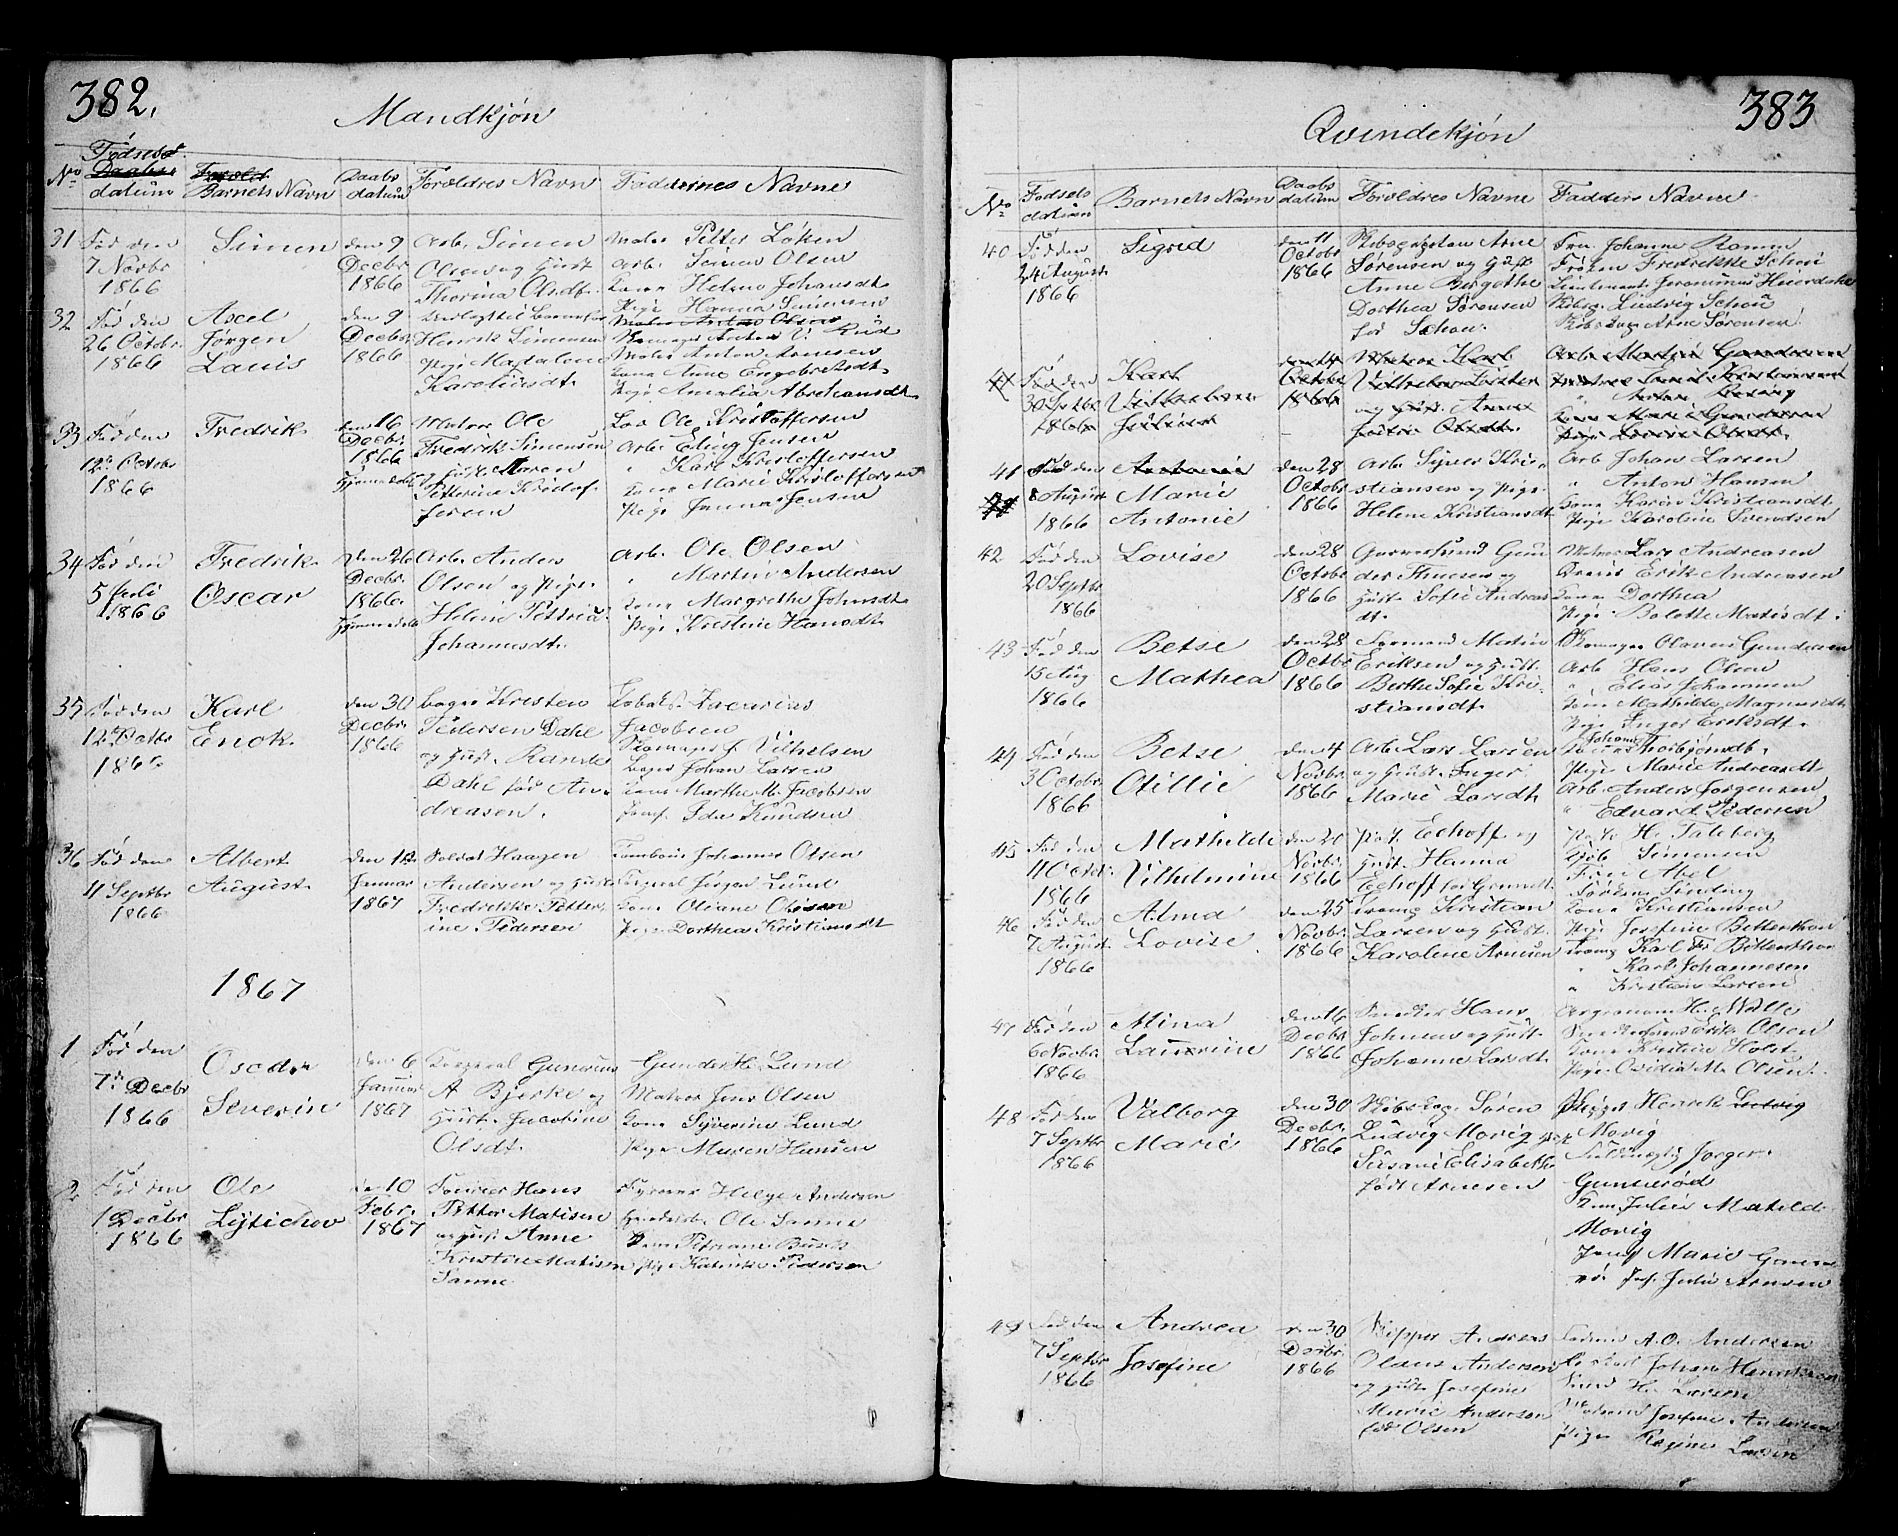 382.
Mandkjøn
No
Fødsels
datum
Barnets Navn
Daabs
datum
Forældres Navn
Faddernes Navne
31
Fød den
7 Novbr
1866
Simen
den 9
Decbr
1866
Arb. Simen
Olsen og Hust
Thorina Olsdt.
Petter Løken
Arb. Simen Olsen
Kone Helene Johansdt
Pige Hanna Simensen
32
Fød den
26 Octobr.
1866
Axel
Jørgen
Lauis
den 9
Decbr
1866
Henrik Simensen
Pige Magdalene
Karolinesdt.
Mator Anton Olsen
Mator Anton Arnesen
Kone Anne Engebretsdt.
Pige Amalia Abrahamsdt.
33
Fød den
12te Octobr
1866
Fredrik
den 16
Decbr.
1866
Hjemmedøbt
Mator Ole
Fredrik Simensen
og Hust. Maren
Petterine Kristof
fersen
Los Ole Kristoffersen
Arb. Eding Jensen
" Karl Kristoffersen
Kone Marie Kristoffersen
Pige Janna Jensen
34
Fød den
5 Juli
1866
Fredrik
Oscar
den 26
Decbr.
1866.
Hjemmedøbt
Arb. Anders
Olsen og Pige
Helene Pettrea
Johannesdt.
Arb. Ole Olsen
" Martin Andersen
Kone Margrethe Johnsdt.
Pige Kristine Hansdt.
35
Fød den
12te Octbr
186
Karl
Enok.
den 30
Decbr.
1866
Kristen
Pedersen Dahl
og Hust. Rande
Dahl født An
dreasen.
Jacobsen
Skomager J. Vilhelsen
Johan Larsen
Kone Marthe M. Jacobsen
Jomf. Ida Knudsen
36
Fød den
11 Septbr
1866
Albert
August.
den 12
Januar
1867
Soldat Haagen
Andersen og Hust
Fredrikke Petter
ine Pedersen
Tambour Johannes Olsen
Corporal Jørgen Lund
Kone Oliane Olsson
Pige Dorthea Kristiansdt
1867
1
Fød den
7de Decbr
1866
Oscar
Severin
den 6
Januar
1867
Corporal Gunerius
A Bjerke og
Hust. Jacobine
Olsdt.
Gunder H. Lund
Matros Jens Olsen
Kone Syverine Lund
Pige Maren Hansen
2
Fød den
1 Decbr
1866
Ole
Lytichov
den 10
Febr.
1867
Hans
Petter Matisen
og Hust Anne
Kristine Matisen
Sanne
Helge Andersen
Ole Sanne
Kone Petriane Busch
Pige Katinke Pedersen
383
Qvindekjøn
No
Fødsels
datum
Barnets Navn
Daabs
datum
Forældres Navne
Fadders Navne
40
Fød den
24 August
1866
Sigrid
den 11
Octobr
1866
Arne
Sørensen og Hust
Anne Birgithe
Dorthea Sørensen
fød Schou.
Fru Johanne Ramm
Frøken Fredrikke Schou
Lieutenant Jeronimus Heierdahl
Skibsg. Ludvig Schou
Arne Sørensen.
Fød den
30 Septbr
1866
Karl
Vilhelm
Julius
den 14
Octobr
1866
Mator Karl
Vilhelm
og Hust. Anne
Olsdt.
Arb. Martin Gundersen
Kone Marie Gundersen
Pige Lovise Olsdt.
41
Fød den
8 August
1866
Antonie
Marie
Antonie
den 28
Octobr
1866
Arb. Syver Kri-
stiansen og Pige
Helene Kristiansdt
Arb Johan Larsen
" Anton Hansen
Kone Karen Kristiansdt
Pige Karoline Svendsen
42
Fød den
20 Septbr
1866
Lovise
den 28
Octobr
1866
Garversvend Gun
der Thuesen og
Hust. Sofie Andreas
dt.
Matros Lars Andreasen
Erik Andreasen
Kone Dorthea
Pige Bolette Matisdt.
43
Fød den
15 Aug
1866
Betse
Mathea
den 28
Octbr
1866
Formand Martin
Eriksen og Hust.
Berthe Sofie Kri-
stiansdt.
Skomager Olavus Gundersen
Arb Hans Olsen
" Elias Johannesen
Kone Mathilde Magnusdt
Pige Inger Eriksdt.
44
Fød den
3 Octobr
1866
Betse
Otillie
den 4
Novbr.
1866
Arb. Lars Larsen
og Hust. Inger
Marie Larsdt.
Kone Johanne Thorbjørnsdt.
Pige Marie Andreasdt
Arb Anders Jørgensen
" Edvard Pedersen
45
Fød den
4 Octobr.
1866
Mathilde
Vilhelmine
den 20
Novbr.
1866
Past. Echoff og
Hust. Hanna
Echoff født
Past. H. Taleberg
Kjøb. Simensen
Fru Abel
Frøken Sinding
46
Fød den
7 August
1866
Alma
Lovise.
den 25
Novbr.
1866
Kristian
Larsen og Hust.
Karoline Arnesen
Kone Kristiansen
Pige Josefine Bettenthon
Karl Fr Bettenthon
" Karl Johannesen
" Kristian Larsen
47
Fød den
6 Novbr.
1866
Mina
Laurine
den 16
Decbr.
1866
Snedker Hans
Johnsen og Hust.
Johanne Larsdt.
H. Mølle
Erik Olsen
Kone Kristine Holst
Pige Ovidia M. Olsen.
48
Fød den
7 Septbr
1866
Valborg
Marie
den 30
Decbr.
1866
Søren
Ludvig Movig og
Susanne Elisabeth
født Arnesen
Henrik Ludvig
Movig
Jørgen
Gunnerød
Julie Matild
Movig
Jomf Marie Gunne
rø. Jof. Julie Arnesen
49
Fød den
7 Septbr
1866
Andrea
Josefine
den 30
Decbr.
1866
Skipper Andreas
Olaus Andersen
og Hust. Josefine
Marie Andersen
fød Olsen
A. O. Andersen
Johan Henriksen
H. Larsen
Josefine Andersen
Pige Regine Larsen